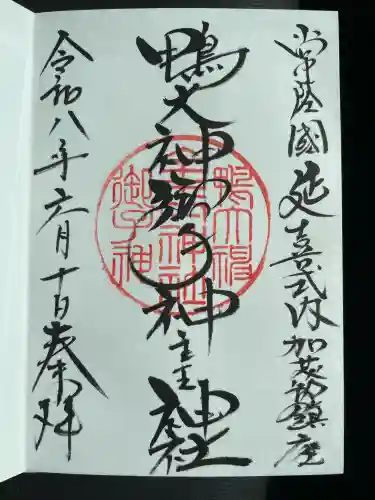 常陸國延喜式内加茂部鎮座
鴨大神御子神主玉神社
令和八年六月十日奉拝